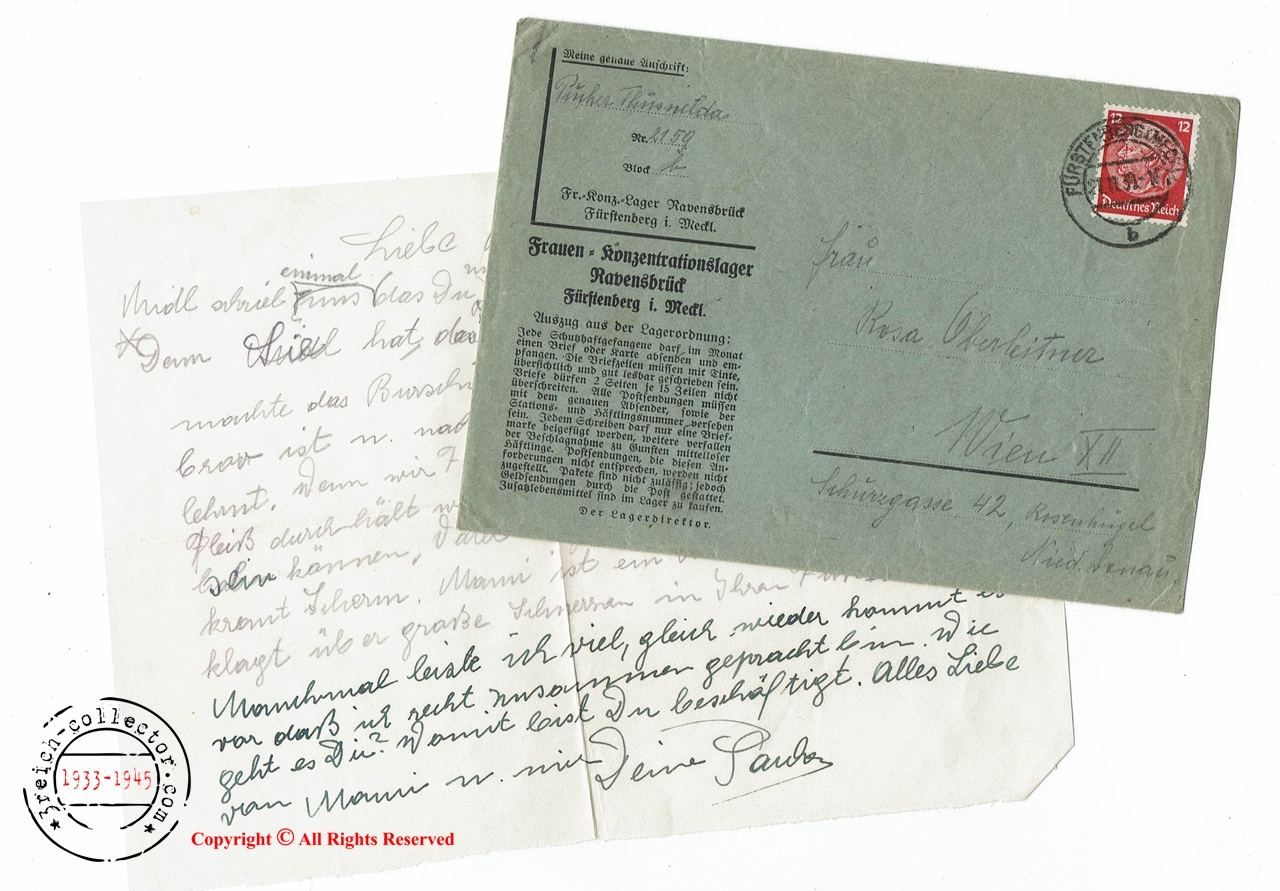 Meine genaue Anschrift:
Pucher Thusnilda
Nr. 2159
Block 6
Fr.-Konz.-Lager Ravensbrück
Fürstenberg i. Meckl.
Frauen-Konzentrationslager
Ravensbrück
Fürstenberg i. Meckl.
Auszug aus der Lagerordnung:
Jede Schutzhaftgefangene darf im Monat
einen Brief oder Karte absenden und em-
pfangen. Die Briefzeilen müssen mit Tinte,
übersichtlich und gut lesbar geschrieben sein.
Briefe dürfen 2 Seiten je 15 Zeilen nicht
überschreiten. Alle Postsendungen müssen
mit dem genauen Absender, sowie der
Stations- und Häftlingsnummer versehen
sein. Jedem Schreiben darf nur eine Brief-
marke beigefügt werden, weitere verfallen
der Beschlagnahme zu Gunsten mittelloser
Häftlinge. Postsendungen, die diesen An-
forderungen nicht entsprechen, werden nicht
zugestellt. Pakete sind nicht zulässig; jedoch
Geldsendungen durch die Post gestattet.
Zusatzlebensmittel sind im Lager zu kaufen.
Der Lagerdirektor.
12 12
Deutsches Reich
FÜRSTENBERG (MECKL)
b
Frau
Rosa Oberleitner
Wien XII
Schurzgasse 42, Rosenhügel
Nied. Donau
Liebe
einmal
uns das Du
Denn hat, das
machte das
brav ist u.
lehnt. Wenn wir
durch hält
sein können,
kraut Scherm. Mami ist ein
klagt über große Schmerzen in Ihren
Manchmal leiste ich viel, gleich wieder kommt es
vor daß ich recht zusammen gepracht bin. Wie
geht es Dir? Womit bist Du beschäftigt. Alles Liebe
von Mami u. mir Deine
3reich-collector.com
1933-1945
Copyright © All Rights Reserved